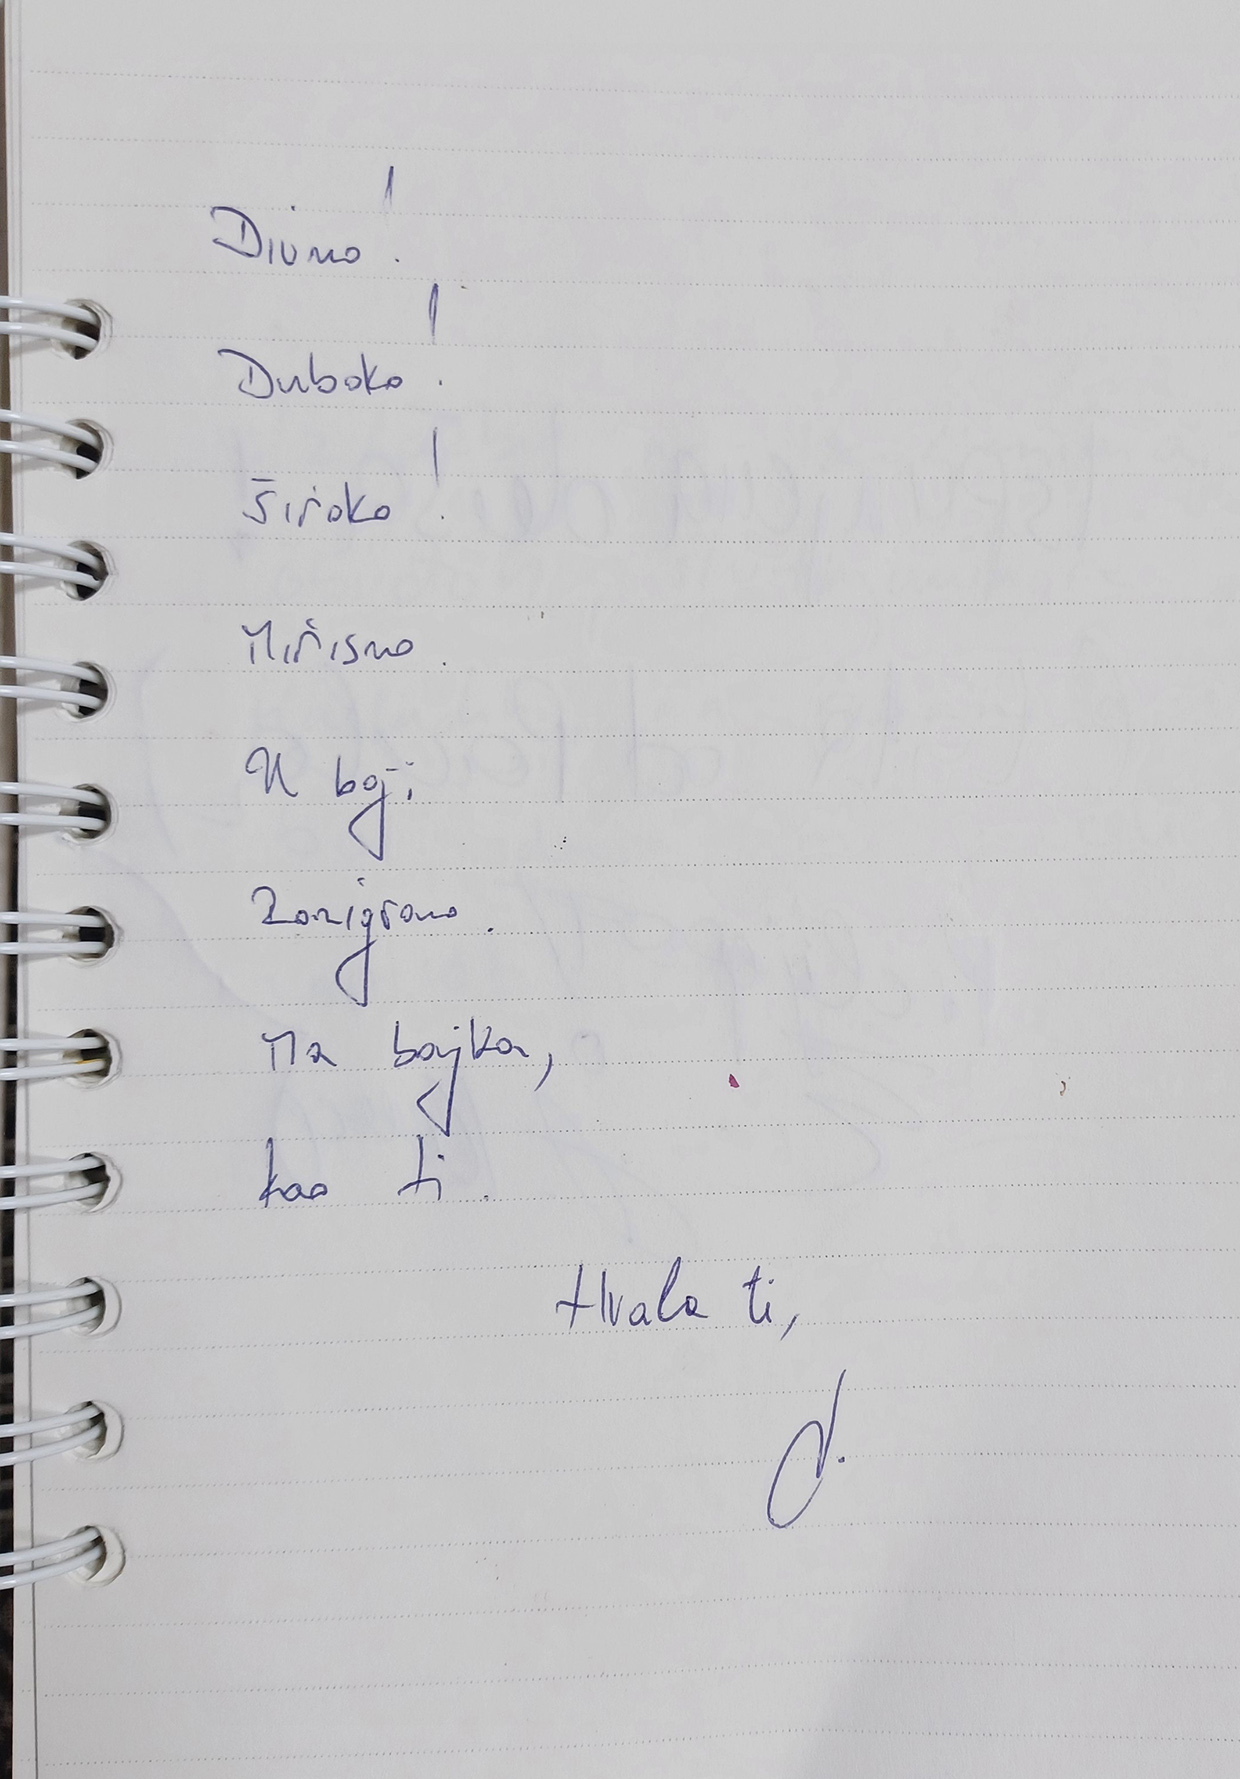 Divno!
Duboko!
Široko!
Mirisno.
U boji
Zaigrano.
Ma bajka,
kao ti.
Hvala ti,
J.